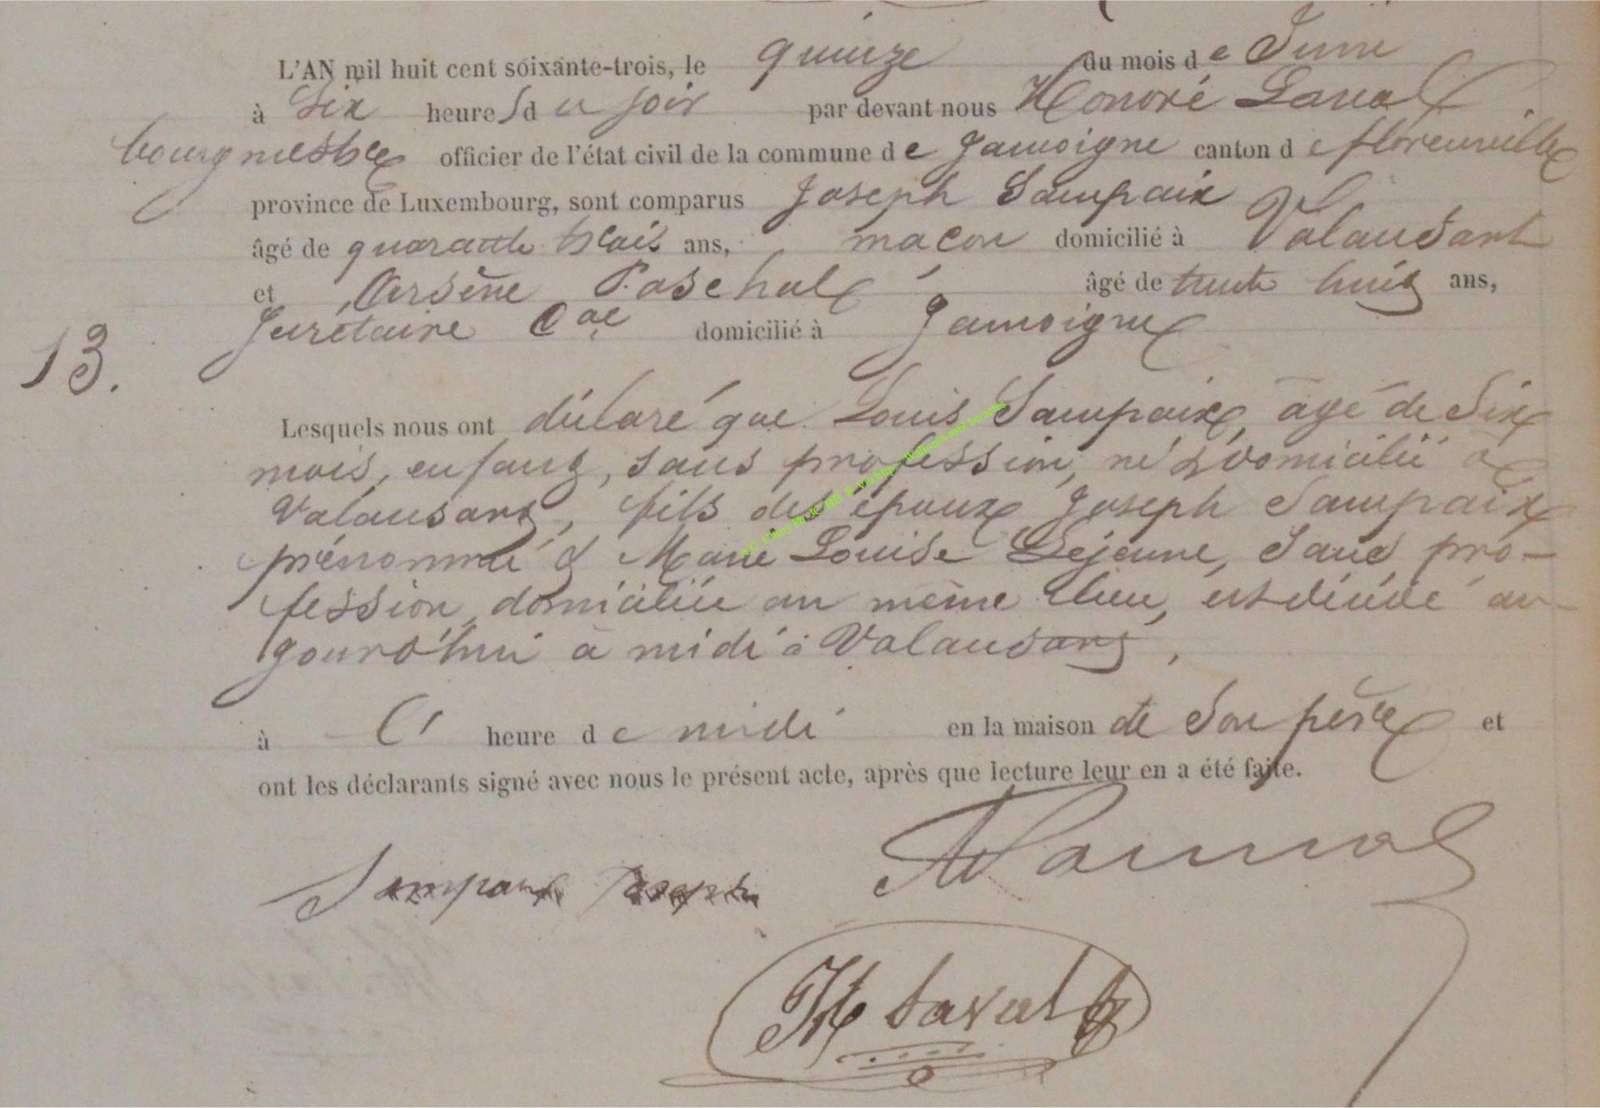 L'AN mil huit cent soixante-trois, le quinze du mois de Juin
à Six heures du soir par devant nous Honoré Laval
bourgmestre officier de l'état civil de la commune de Jamoigne canton de florenville
province de Luxembourg, sont comparus Joseph Sampaix
âgé de quarante trois ans, macon domicilié à Valansart
et Arsène Paschal âgé de trente huit ans,
Secrétaire Cal domicilié à Jamoigne
13.
Lesquels nous ont déclaré que Louis Sampaix, âgé de Six
mois, enfant, sans profession, né & domicilié à
Valansart, fils des époux Joseph Sampaix
prénommé & Marie Louise Lejeune, Sans pro-
fession, domiciliée au même lieu, est décédé au-
jourd'hui à midi à Valansart,
à heure de midi en la maison de Son père et
ont les déclarants signé avec nous le présent acte, après que lecture leur en a été faite.
Sampaix Joseph
H Laval